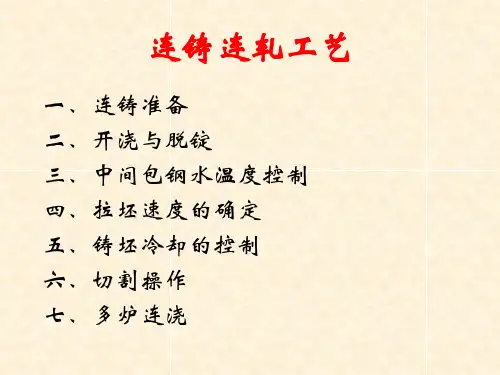 连铸连轧工艺
一、连铸准备
二、开浇与脱锭
三、中间包钢水温度控制
四、拉坯速度的确定
五、铸坯冷却的控制
六、切割操作
七、多炉连浇